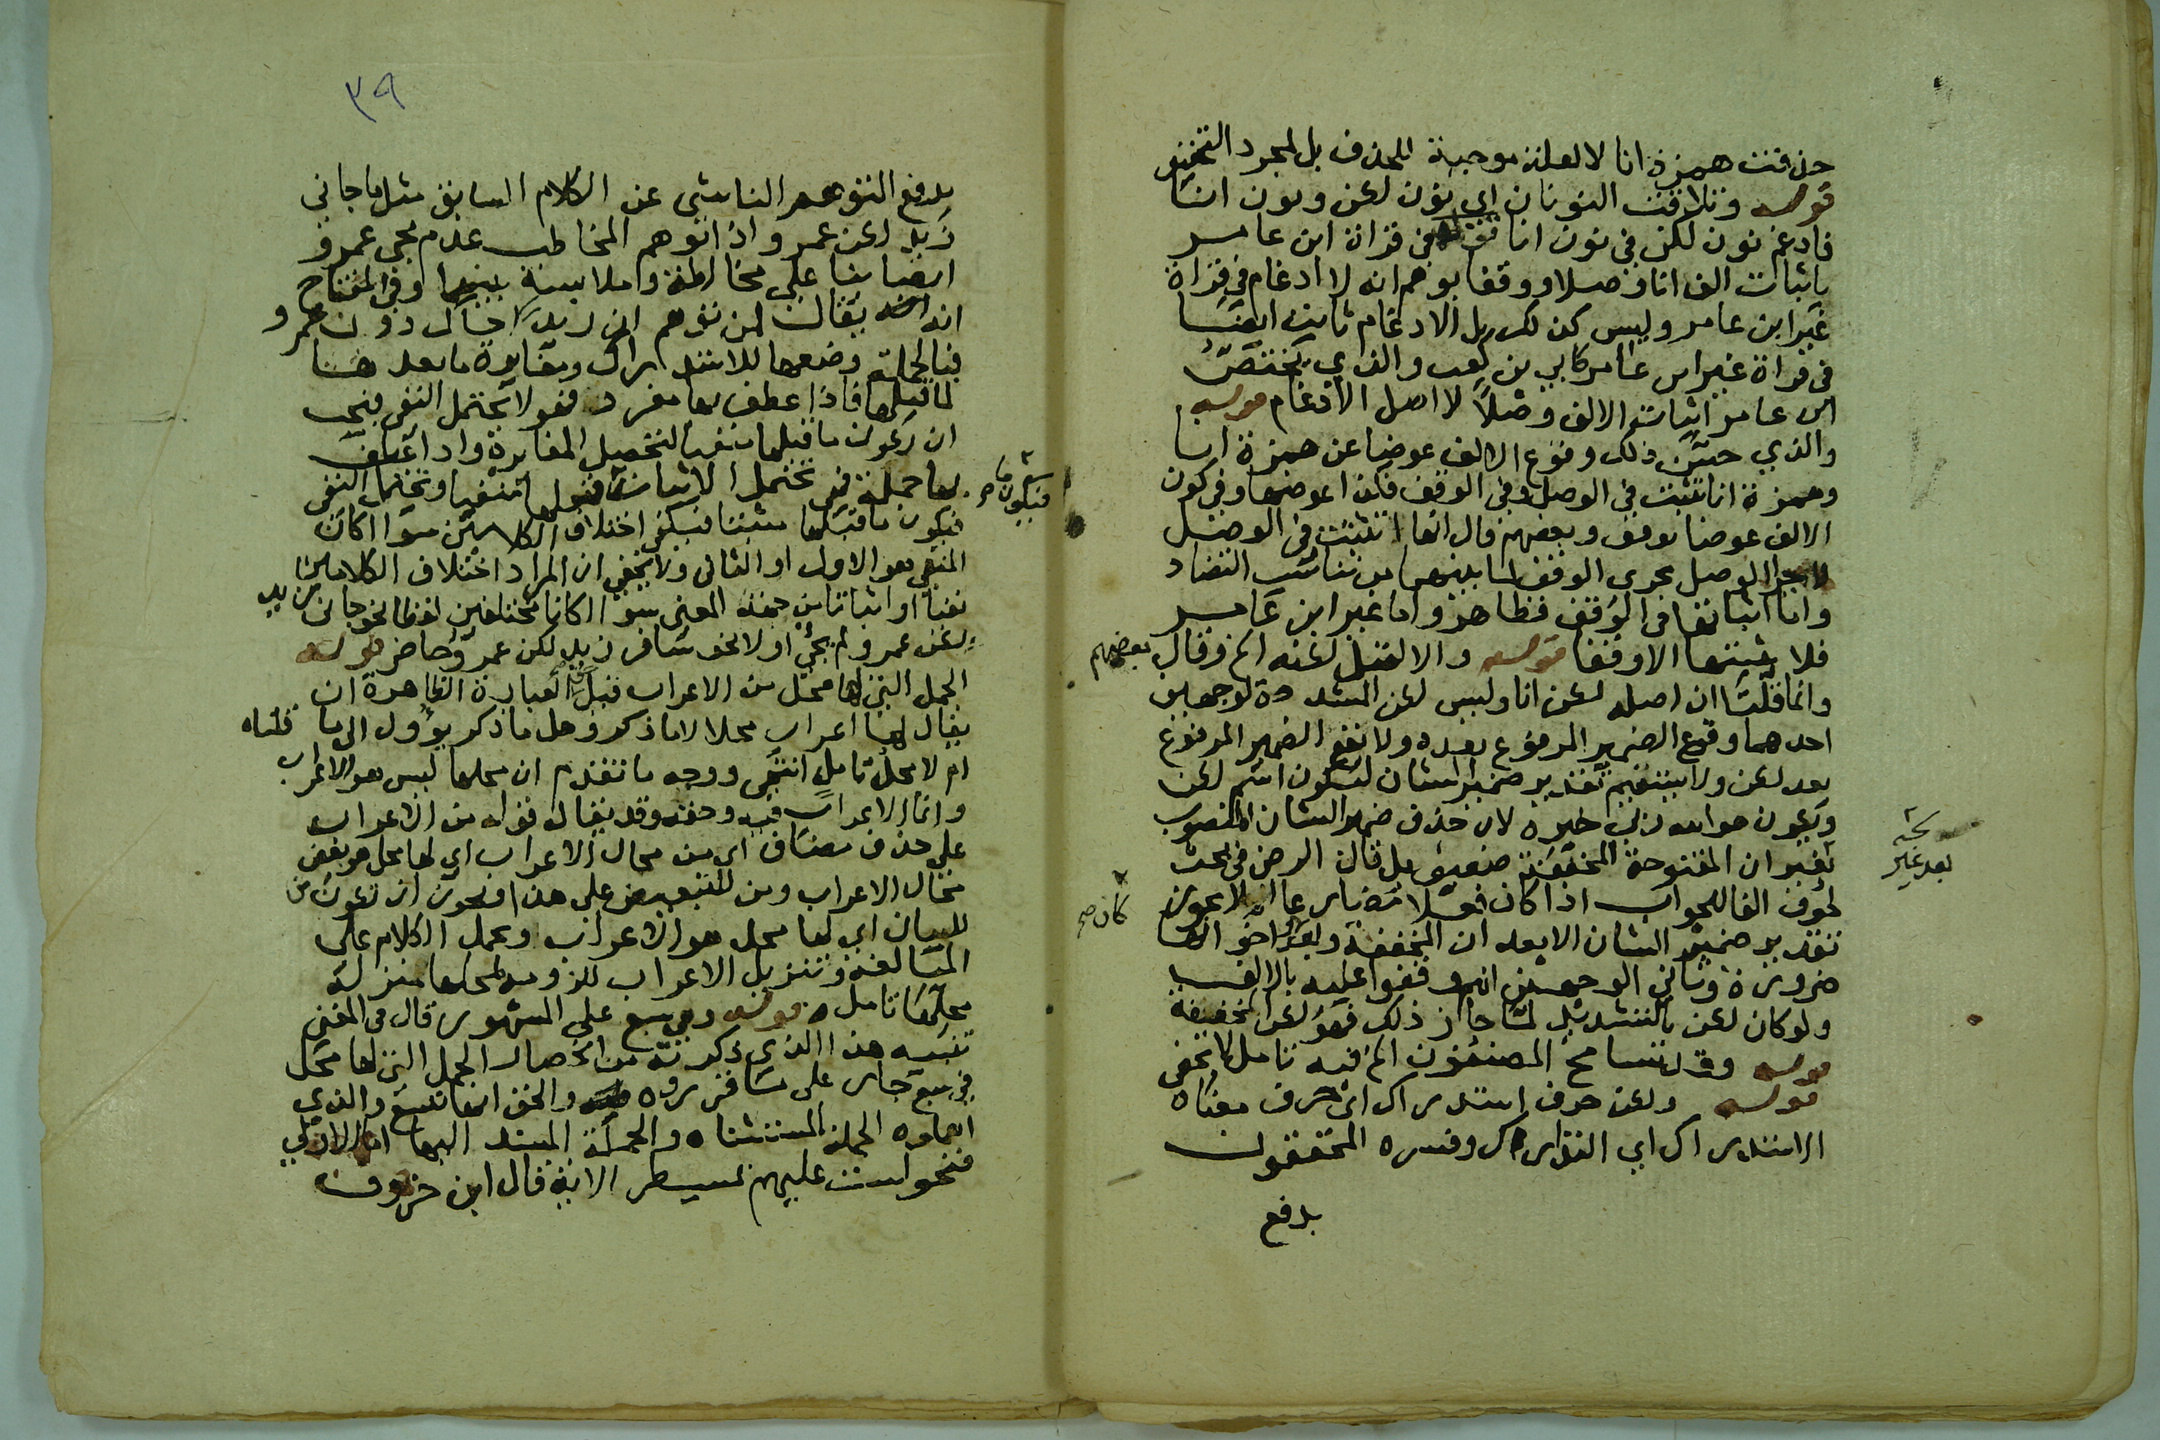 حذفت همزة انا لا لعلة موجبة للحذف بل لمجرد التخفيف
قوله وتلاقت النونان اي نون لكن ونون انا
فادغم نون لكن في نون انا في قراة ابن عامر
باثبات الف انا وصلا ووقفا يوهم انه لا ادغام في قراة
غير ابن عامر وليس كذلك بل الادغام ثابت ايضا
في قراة غير ابن عامر كابي بن كعب والذي يختص
ابن عامر اثبات الالف وصلا لا اصل الادغام قوله
والذي حسن ذلك وقوع الالف عوضا عن همزة انا
وهمزة انا تثبت في الوصل وفي الوقف فكذا عوضها وفي كون
الالف عوضا توقف وبعضهم قال انها اثبتت في الوصل
لاجرا الوصل مجرى الوقف لما بينهما من تناسب التضاد
واما اثباتها في الوقف فظاهر واما غير ابن عامر
فلا يثبتها الا وقفا قوله والا لقيل لكنه الخ وقال بعضهم
وانما قلنا ان اصله لكن انا وليس لكن المشددة لوجهين
احدهما وقوع الضمير المرفوع بعده ولا يقع الضمير المرفوع
بعد لكن ولا يستقيم تقدير ضمير الشان ليكون اسم لكن
ويكون هو الله ربي خبره لان حذف ضمير الشان المنصوب
بغير ان المفتوحة المخففة ضعيف بل قال الرضي في بحث
لحوق الفا للجواب اذا كان فعلا مضارعا انه لا يجوز
تقدير ضمير الشان الا بعد ان المخففة
ضرورة وثاني الوجهين انهم وقفوا عليه بالالف
ولو كان لكن بالتشديد لما جاز ذلك فهو لكن المخففة
قوله وقد تسامح المصنفون الخ فيه تامل لا يخفى
قوله ولكن حرف استدراك اي حرف معناه
الاستدراك اي التدارك وفسره المحققون
بدفع
بحثه
بعد غير
كان صح
٣٩
بدفع التوهم الناشي عن الكلام السابق مثل ما جاني
زيد لكن عمرو اذا توهم المخاطب عدم مجي عمرو
ايضا بنا على مخالطة وملابسة بينهما وفي المفتاح
انه يقال لمن توهم ان زيدا جاك دون عمرو
فبالجملة وضعها للاستدراك ومغايرة ما بعدها
لما قبلها فاذا عطف بها مفرد فهو لا يحتمل النفي فيجب
ان يكون ما قبلها منفيا لتحصيل المغايرة واذا عطف
بها جملة فهي تحتمل الاثبات فيكون ما قبلها منفيا وتحتمل النفي
فيكون ما قبلها مثبتا فيكفي اختلاف الكلامين سوا كان
المنفي هو الاول او الثاني ولا يخفى ان المراد اختلاف الكلامين
نفيا او اثباتا من جهة المعنى سوا كانا مختلفين لفظا نحو جاني زيد
لكن عمرو لم يجئ او لا نحو سافر زيد لكن عمرو حاضر قوله
الجمل التي لها محل من الاعراب قيل العبارة الظاهرة ان
يقال لها اعراب محلا لا ما ذكر وهل ما ذكر يؤول الى ما قلناه
ام لا محل تامل انتهى ووجه ما تقدم ان محلها ليس هو الاعراب
وانما الاعراب فيه وحقه وقد يقال قوله من الاعراب
على حذف مضاف اي من محال الاعراب اي لها محل هو بعض
محال الاعراب ومن للتبعيض على هذا ويجوز ان تكون من
للبيان اي لها محل هو الاعراب ويحمل الكلام على
المبالغة وتنزيل الاعراب للزومه لمحلها منزلة
محلها تامل قوله وهي سبع على المشهور قال في المغني
تنبيه هذا الذي ذكرته من انحصار الجمل التي لها محل
في سبع جار على ما قرروه والحق انها تسع والذي
اهملوه الجملة المستثناه والجملة المسند اليها اما الاولى
فنحو لست عليهم بمسيطر الاية قال ابن خروف
فيكون ما صح